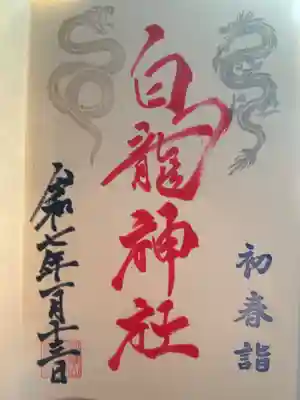 白龍神社
初春詣
令和七年一月十三日